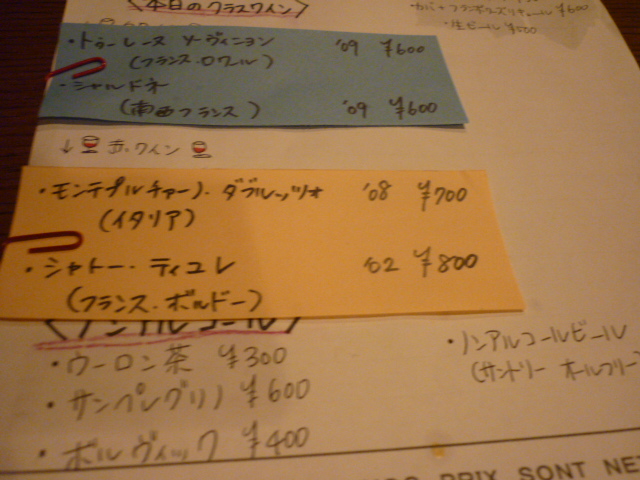 〈本日のグラスワイン〉
・生ビール ¥500
・トゥーレーヌ ソーヴィニヨン '09 ¥600
(フランス・ロワール)
・シャルドネ
(南西フランス) '09 ¥600
↓ 赤ワイン
・モンテプルチアーノ・ダブルッツオ '08 ¥700
(イタリア)
・シャトー・ティユレ '02 ¥800
(フランス・ボルドー)
〈ノンアルコール〉
・ウーロン茶 ¥300
・サンペレグリノ ¥600
・ボルヴィック ¥400
・ノンアルコールビール
(サントリー オールフリー)
PRIX SONT NE